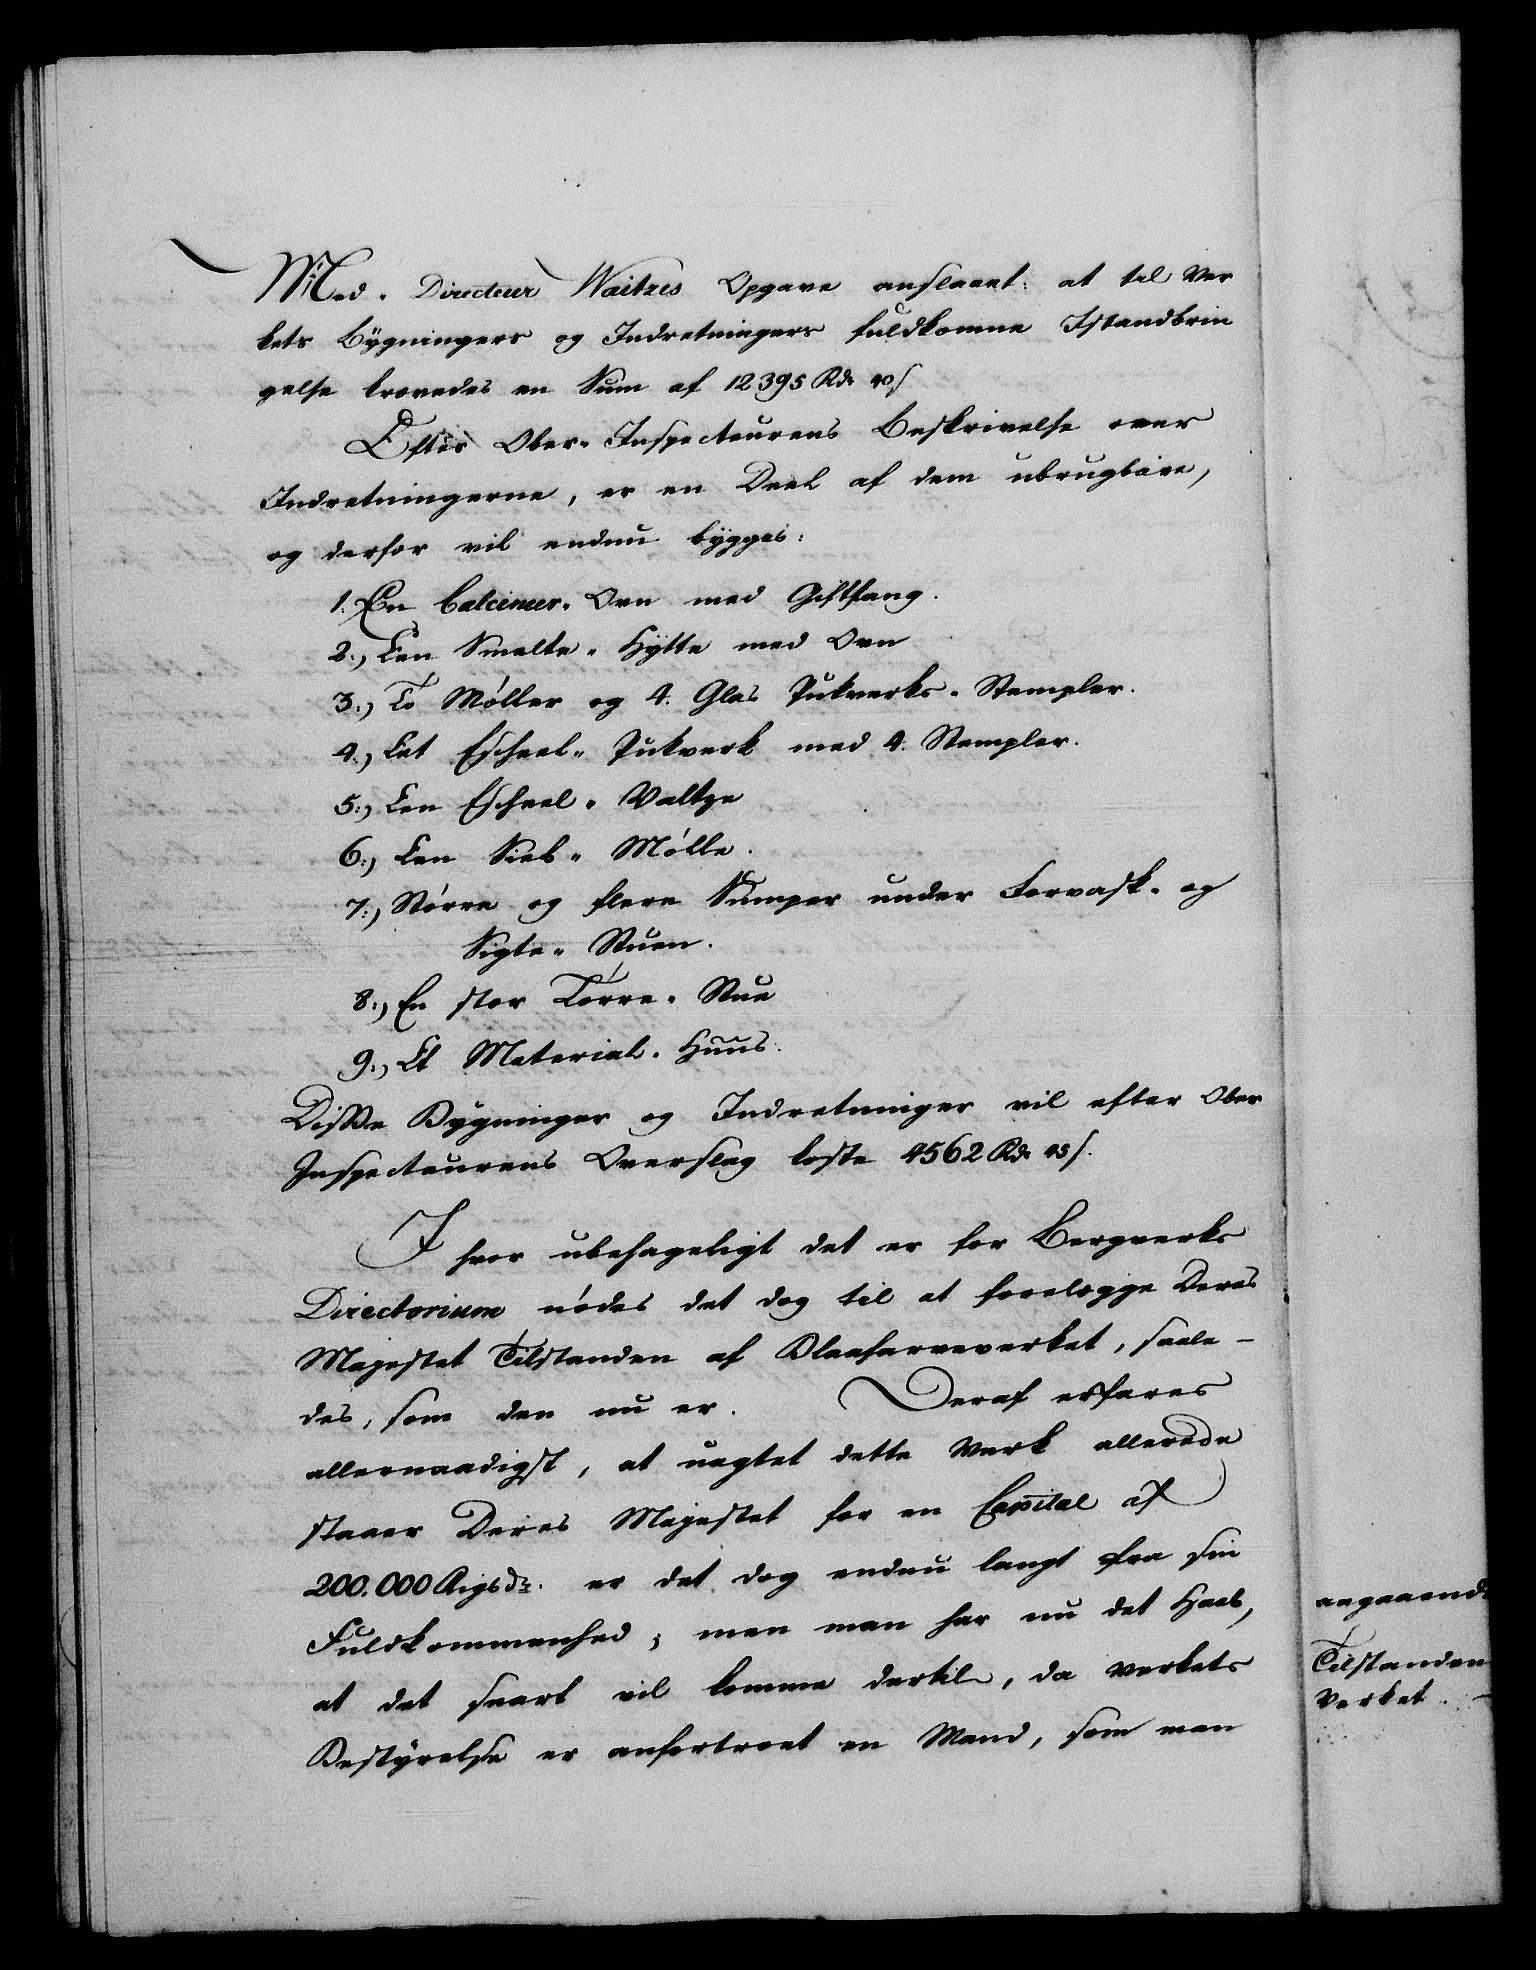 Med. Directeur Waitzes Opgave anslaaet: at til Ver
kets Bÿgningers og Indretningers fuldkomne Istandbrin
gelse krævedes en Sum af 12395 Rd. 40 s
Efter Ober-Inspecteurens Beskrivelse over
Indretningerne, er en Deel af dem ubrugbare,
og derfor vil endnu bÿgges:
1. En Calcineer-Ovn med Giftfang.
2:, Een Smelte-Hÿtte med Ovn
3:, To Møller og 4. Glas Pukverks-Stempler.
4:, Eet Eschel-Pukverk med 4. Stempler.
5:, Een Eschel-Valtze
6:, Een Sieb-Mølle.
7:, Større og flere Sumper under Forvask- og
Sigte-Stuen.
8:, En stor Tørre-Stue
9:, Et Material-Huus.
Disse Bÿgninger og Indretninger vil efter Ober
Inspecteurens Overslag koste 4562 Rd. 45 s.
I hvor ubehageligt det er for Bergverks
Directorium nødes det dog til at forelægge Deres
Majestet Tilstanden af Blaafarveverket, saale-
des, som den nu er. Deraf erfares
allernaadigst, at uagtet dette Verk allerede
staaer Deres Majestet for en Capital af
200.000 Rigsdr. er det dog endnu langt fra sin
Fuldkommenhed; men man har nu det Haab,
at det snart vil komme dertil, da Verkets
Bestÿrelse er anfortroet en Mand, som man
angaaende
Tilstanden
Verket. -